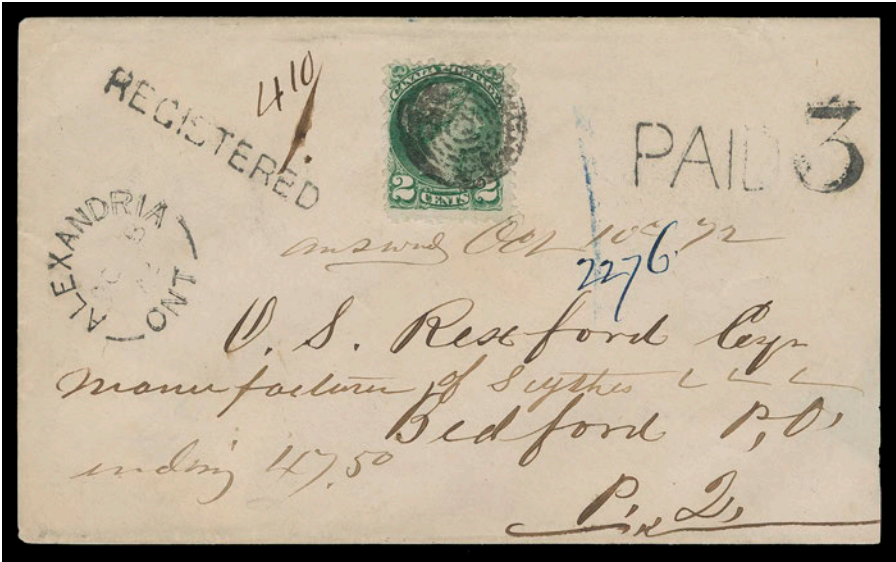 REGISTERED
410
CANADA POSTAGE
2 CENTS 2
PAID 3
ALEXANDRIA
ONT
answered Oct 10th 72
2276
O. S. Rexford Esqr
Manufacturer of Scythes
Bedford P.O.
ending 47.50
P. Q.